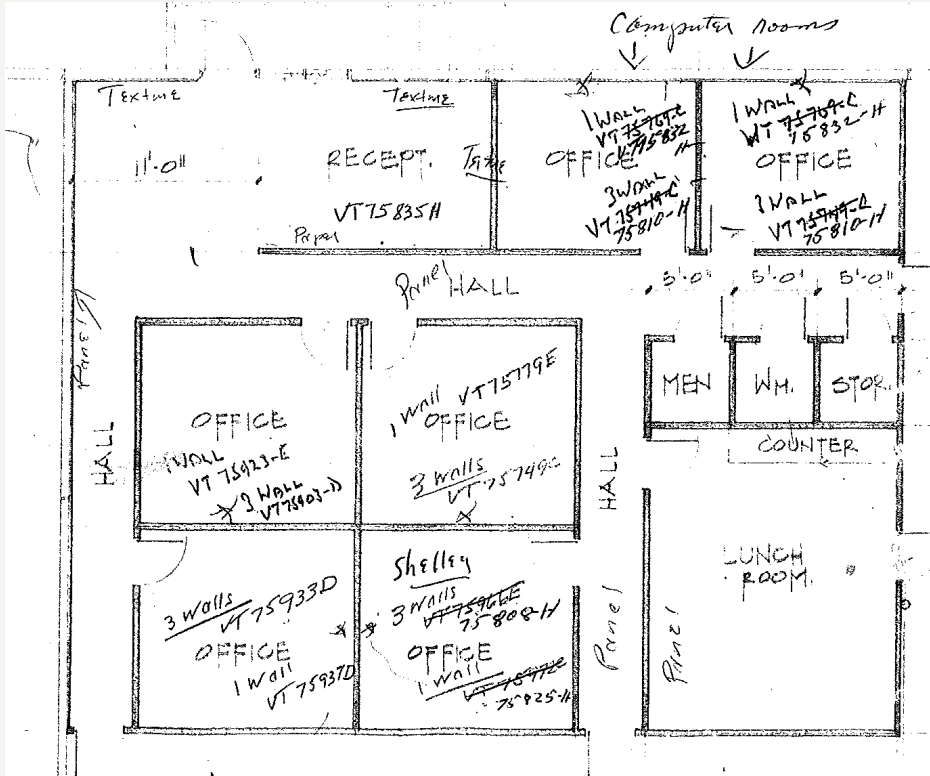 Computer rooms
Texture
Texture
11'-0"
RECEPT.
VT75835H
Paper
1 WALL
VT 75769-C
75832
H
OFFICE
3 WALL
VT 75749-C
75810-H
1 WALL
VT 75769-C
75832-H
OFFICE
3 WALL
VT 75749-C
75810-H
Panel
HALL
5'-0"
5'-0"
5'-0"
Panel
HALL
OFFICE
1 WALL
VT 75923-E
3 WALL
VT75903-D
1 Wall VT 75779E
OFFICE
3 Walls
VT 75749C
HALL
MEN
WM.
STOR.
COUNTER
LUNCH
ROOM.
3 Walls
VT 75933D
OFFICE
1 Wall
VT 75937D
Shelley
3 Walls
75808-H
OFFICE
1 Wall
75825-H
Panel
Panel